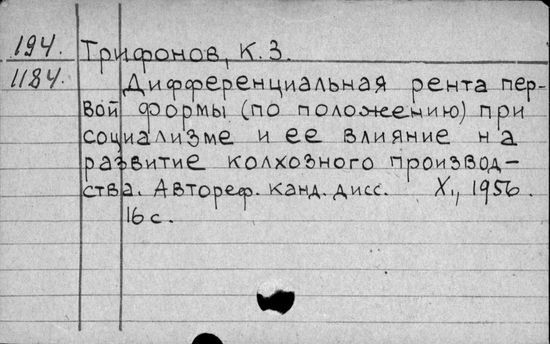 194. Трифонов, К.З.
1184. Дифференциальная рента пер-
вой формы (по положению) при
социализме и ее влияние на
развитие колхозного производ-
ства. Автореф. канд. дисс. Х., 1956.
16 с.